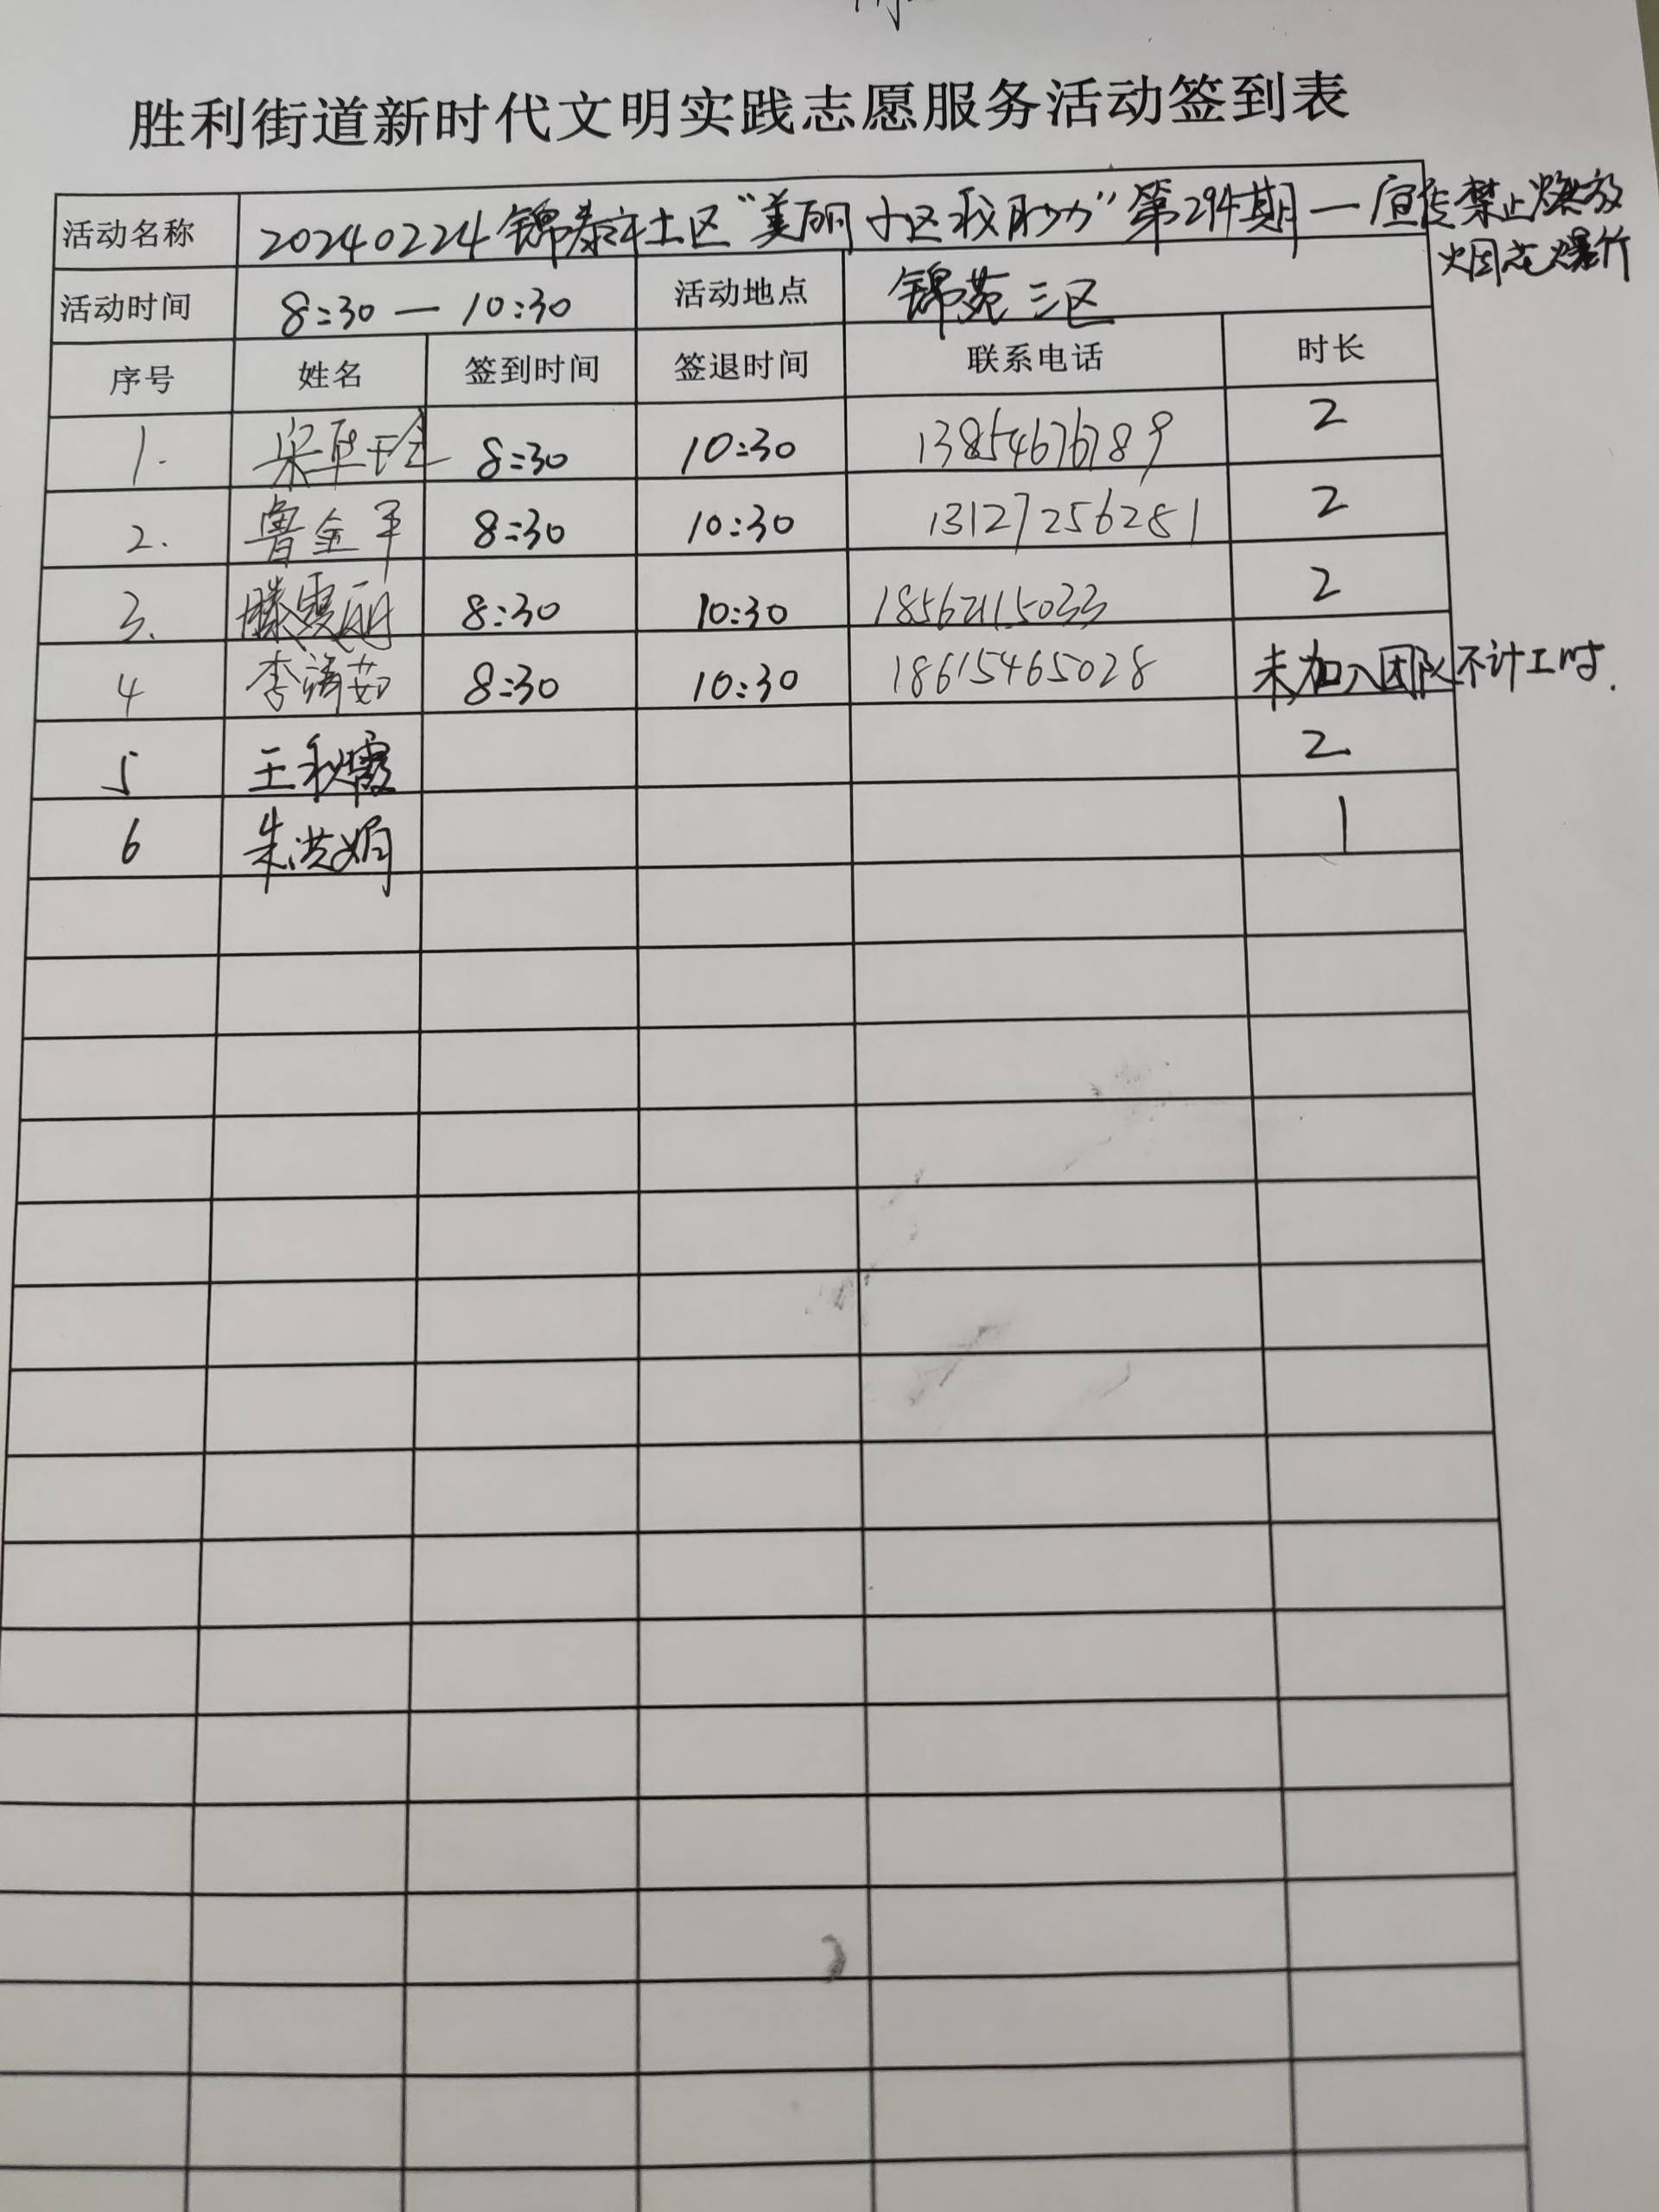 胜利街道新时代文明实践志愿服务活动签到表
活动名称 20240224锦泰社区“美丽小区我助力”第294期—宣传禁止燃放
烟花爆竹
活动时间 8:30—10:30 活动地点 锦苑三区
序号 姓名 签到时间 签退时间 联系电话 时长
1. 8:30 10:30 13854676789 2
2. 鲁金平 8:30 10:30 13127256281 2
3. 滕霞丽 8:30 10:30 18562115033 2
4 李清茹 8:30 10:30 18615465028 未加入团队不计工时.
5 王秋霞 2
6 朱洪娟 1